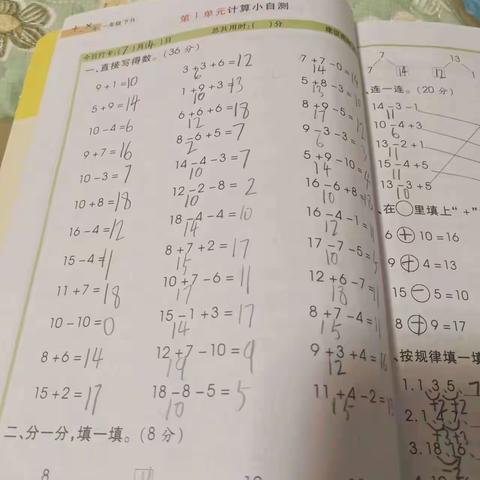 一年级 下 R
第1单元计算小自测
今日打卡:(17)月(14)日
总共用时:( )分
一、直接写得数。(36分)
9+1=10
3+3+6=12
6
7+7-0=
14
5+9=14
1+9+3=13
10
5+8-3=
13
10-4=6
6+6+6=18
12
8+9-5=
17
9+7=16
8-6+5=7
2
9-3-3=
6
10-3=7
14-4-3=7
10
5+9-10=4
14
10+8=18
12-2-8=2
10
16-6+8=
10
16-4=12
18-4-4=10
14
16-4-1=
12
15-4=11
8+7+2=17
15
17-7-5=
10
11+7=18
10+7-6=11
17
12+6-7=
18
10-10=0
15-1+3=17
14
8+7-4=
15
8+6=14
12+7-10=9
19
9+3+4=16
12
15+2=17
18-8-5=5
10
11+4-2=
15
二、分一分,填一填。(8分)
8
7
14
12
13
连一连。(20分)
14-3-1
11
10-4+3
6
13-2+1
11
15-4+5
11
13-3+5
10
、在○里填上“+
6+10=16
9+4=13
15-5=10
8+9=17
、按规律填一填
1. 1, 3, 5,
2. 1, 4, 7,
3. 18, 16,